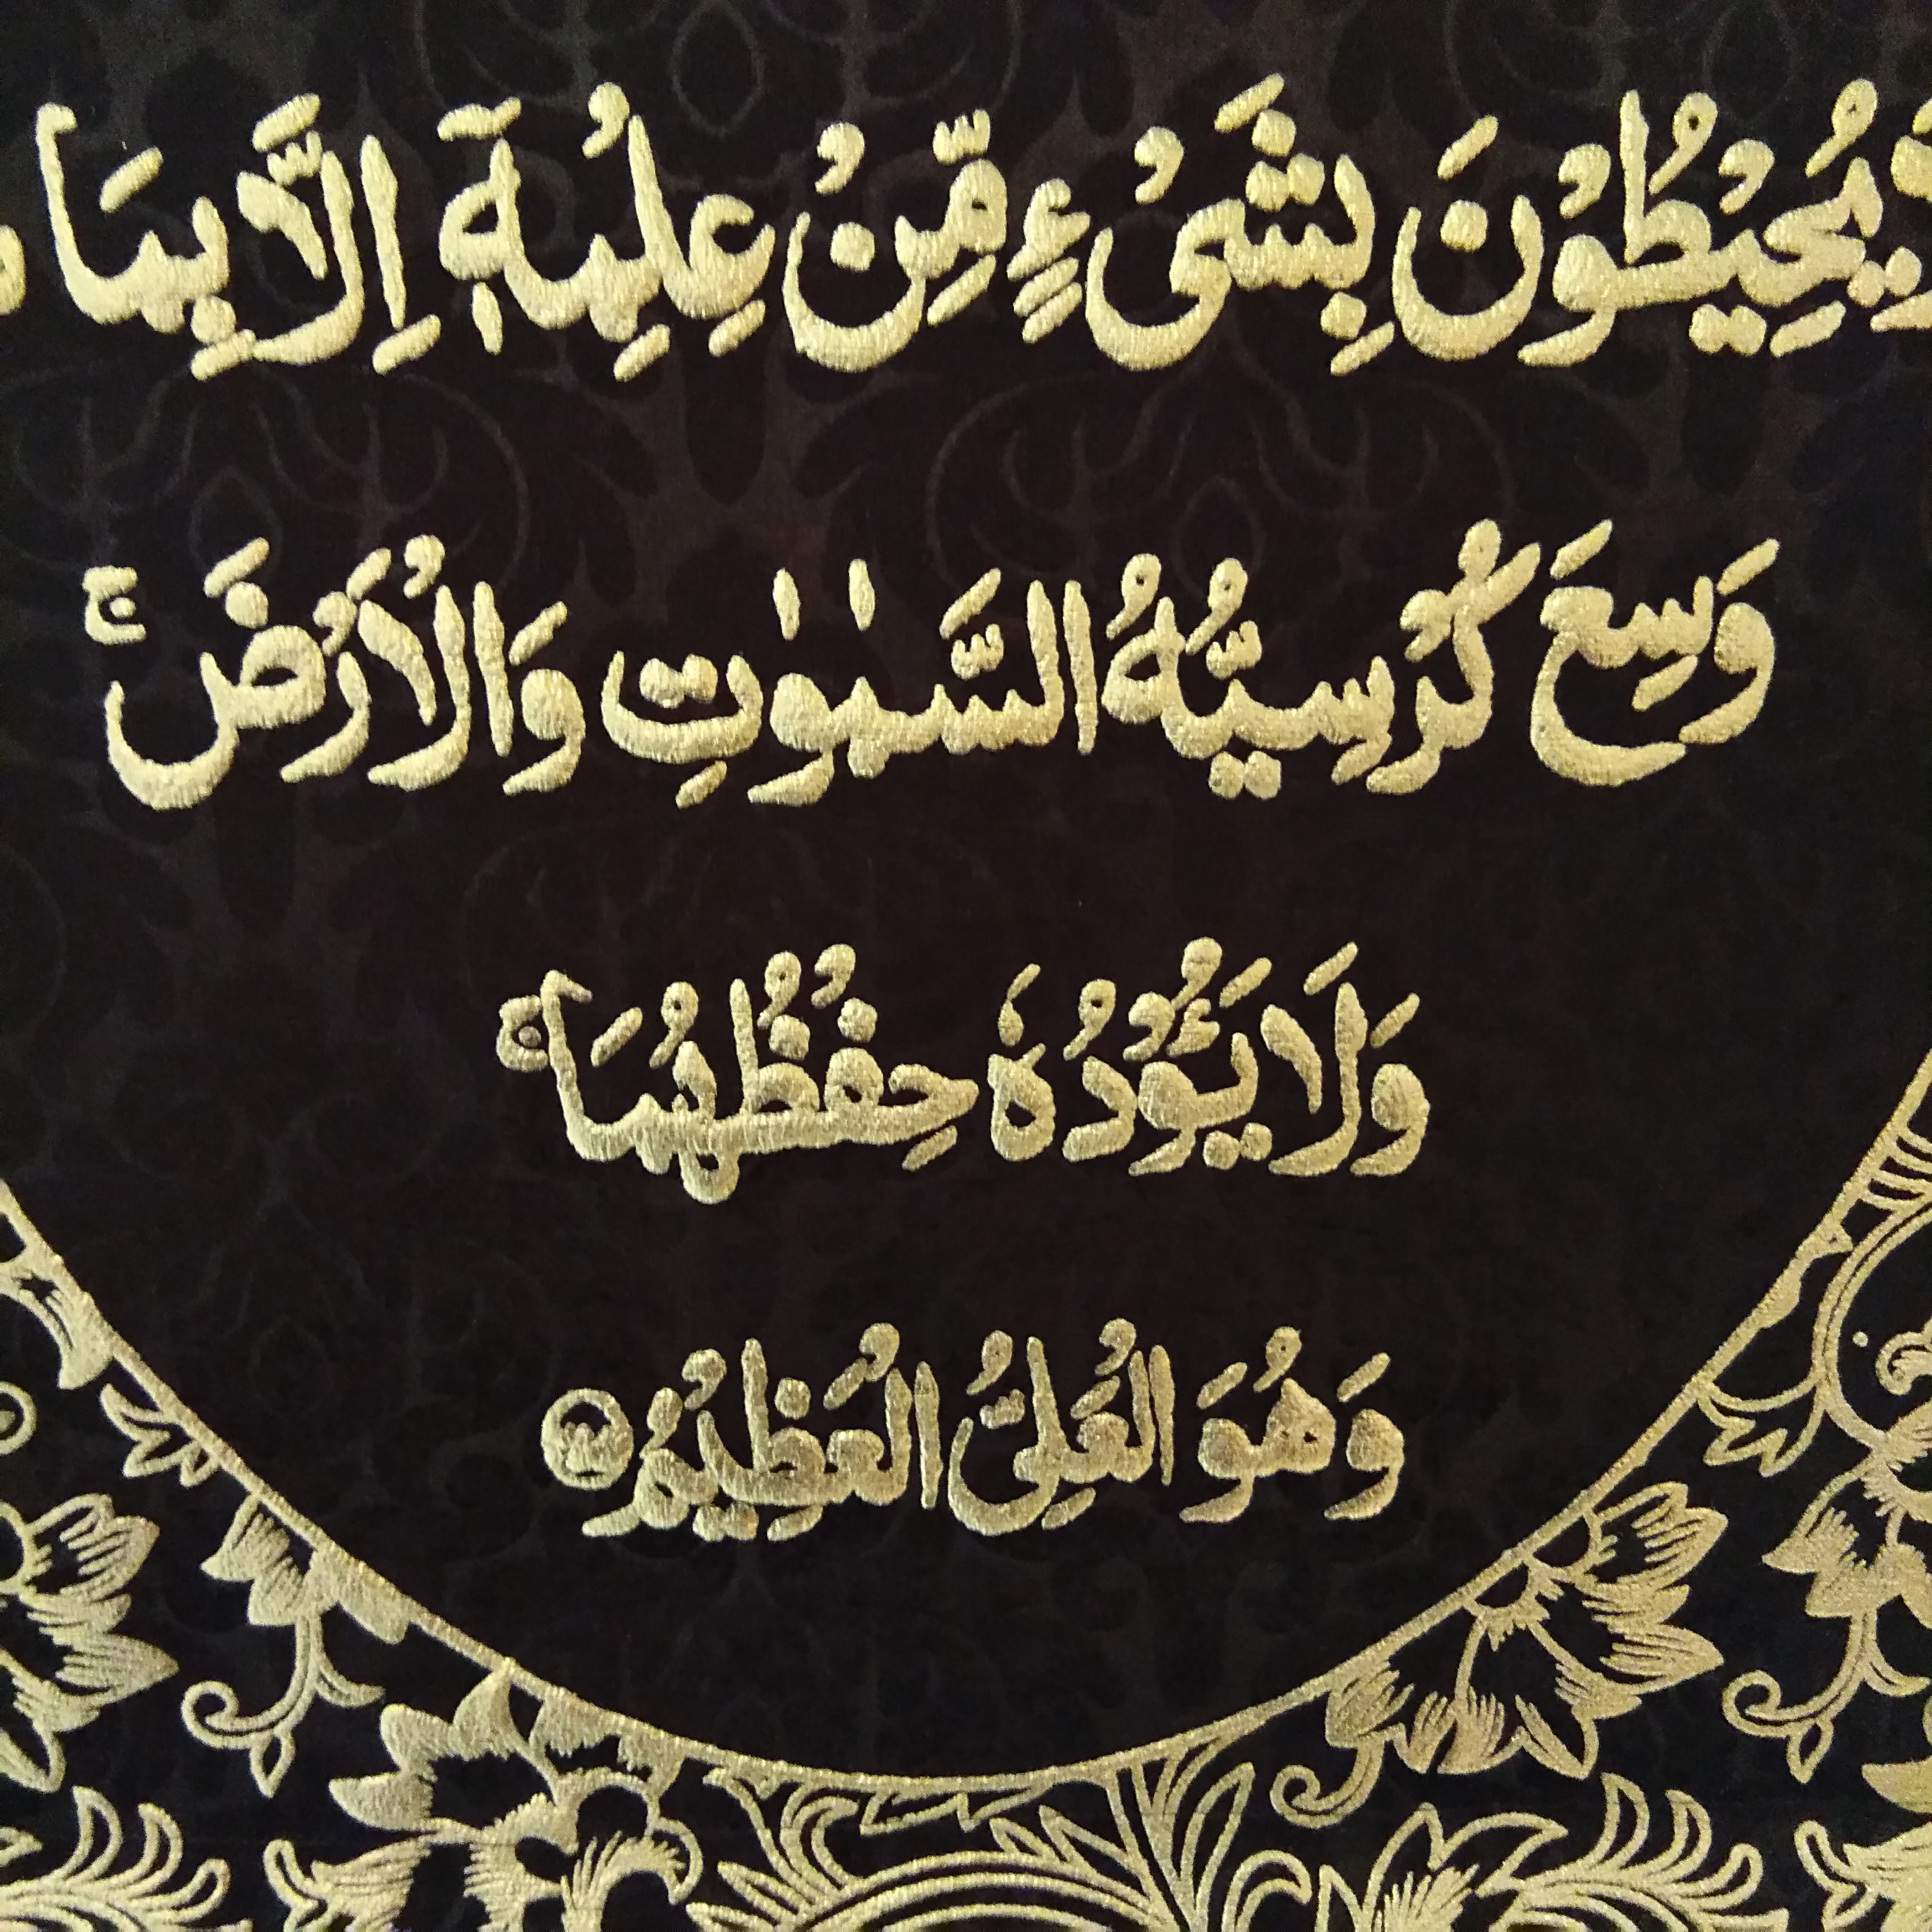 يُحِيْطُوْنَ بِشَىْءٍ مِّنْ عِلْمِهٖٓ اِلَّا بِمَا
وَسِعَ كُرْسِيُّهُ السَّمٰوٰتِ وَالْاَرْضَ ۚ
وَلَا يَـُٔوْدُهٗ حِفْظُهُمَا ۚ
وَهُوَ الْعَلِىُّ الْعَظِيْمُ